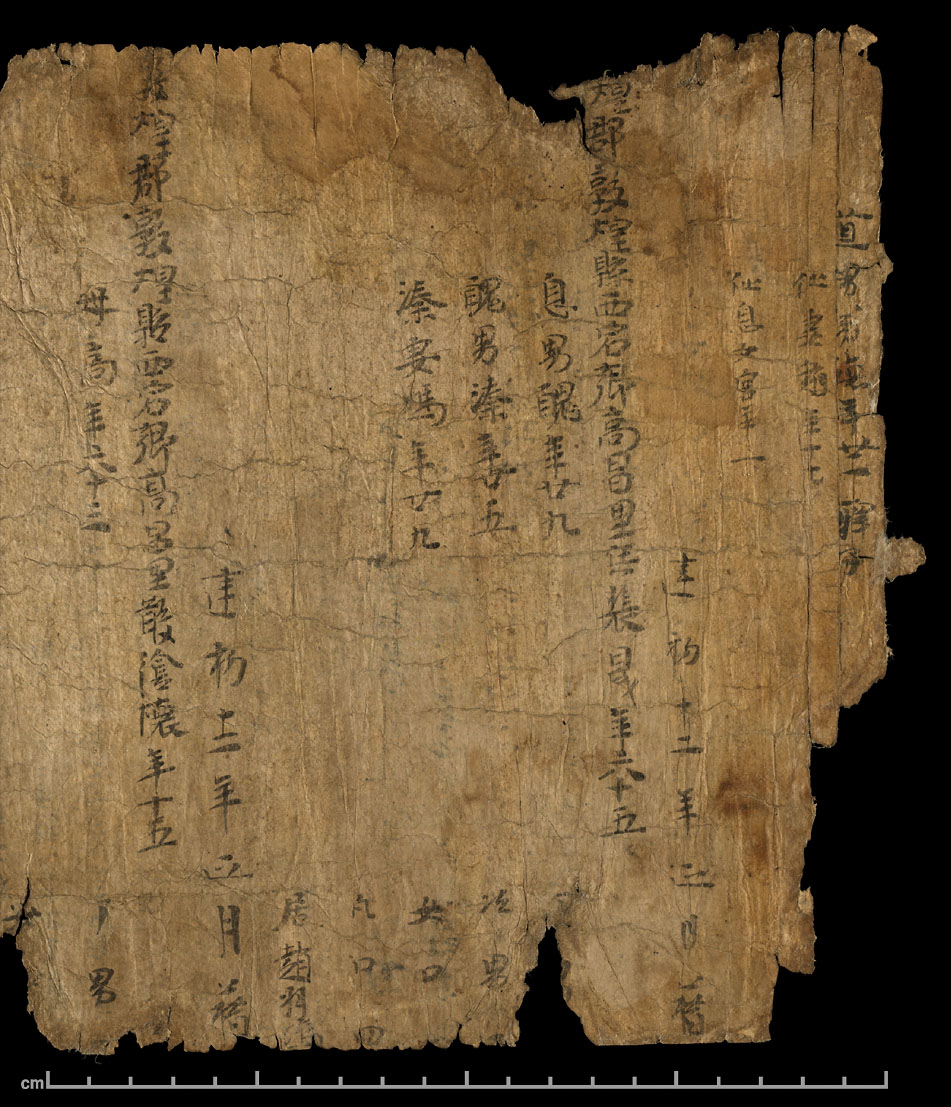 道男弟德年廿一驛子
仙妻趙年十七
仙息女宮年一
建初十二年正月籍
煌郡敦煌縣西宕鄉高昌里兵裴晟年六十五
息男醜年廿九
醜男溱年廿五 次男
溱妻馮年廿九 女二口
凡口四
居趙羽
建初十二年正月籍
敦煌郡敦煌縣西宕鄉高昌里散陰懷年十五
母高年六十三 丁男